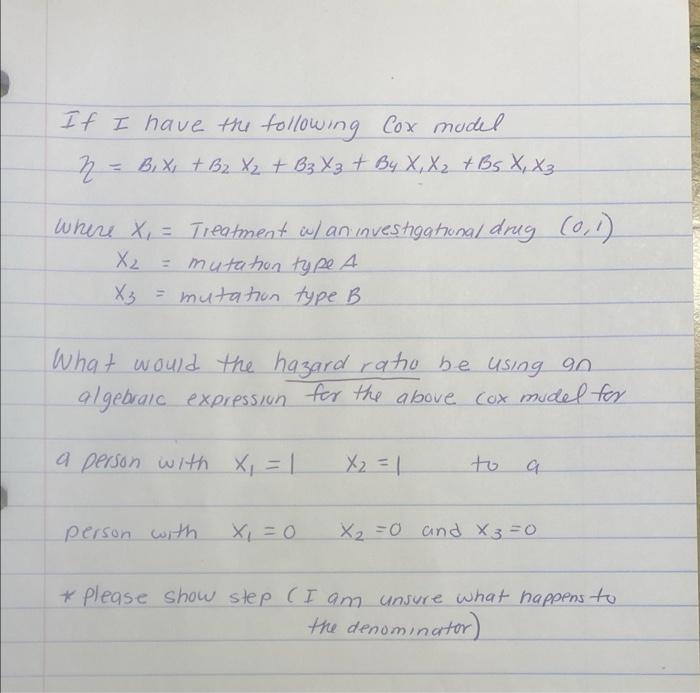 If I have the following Cox model
η = B₁X₁ + B₂ X₂ + B₃X₃ + B₄ X₁X₂ + B₅ X₁X₃
where X₁ = Treatment w/ an investigational drug (0,1)
X₂ = mutation type A
X₃ = mutation type B
What would the hazard ratio be using an
algebraic expression for the above cox model for
a person with X₁ = 1 X₂ = 1 to a
person with X₁ = 0 X₂ = 0 and X₃ = 0
* Please show step (I am unsure what happens to
the denominator)